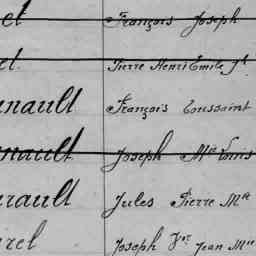 el François Joseph
el Pierre Henri Emile Jh
nault François Toussaint
nault Joseph Mie Louis
rault Jules Pierre Mie
rel Joseph Vor Jean Mie